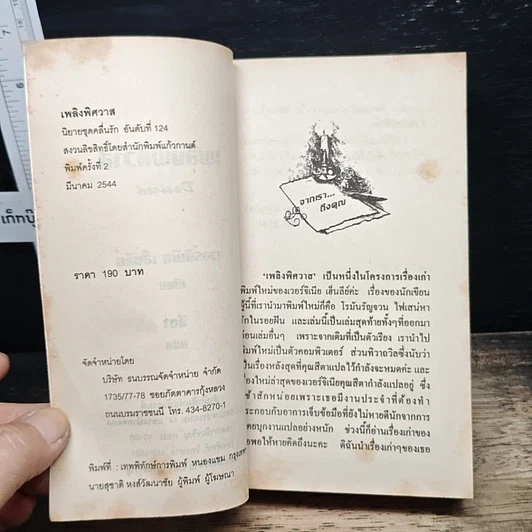 เพลิงพิศวาส
นิยายชุดคลื่นรัก อันดับที่ 124
สงวนลิขสิทธิ์โดยสำนักพิมพ์แก้วกานต์
พิมพ์ครั้งที่ 2
มีนาคม 2544
ราคา 190 บาท
จัดจำหน่ายโดย
บริษัท ธนบรรณจัดจำหน่าย จำกัด
1735/77-78 ซอยภัตตาคารกุ้งหลวง
ถนนบรมราชชนนี โทร. 434-8270-1
พิมพ์ที่ : เทพพิทักษ์การพิมพ์ หนองแขม กรุงเทพฯ
นายสุชาติ หงส์วัฒนาชัย ผู้พิมพ์ ผู้โฆษณา
จากเรา...
ถึงคุณ
'เพลิงพิศวาส' เป็นหนึ่งในโครงการเรื่องเก่า
พิมพ์ใหม่ของเวอร์จิเนีย เฮ็นลีย์ค่ะ เรื่องของนักเขียน
ผู้นี้ที่เรานำมาพิมพ์ใหม่ก็คือ โรมันรัญจวน ไฟเสน่หา
รักในรอยฝัน และเล่มนี้เป็นเล่มสุดท้ายทั้งๆที่ออกมา
ก่อนเล่มอื่นๆ เพราะจากเดิมที่เป็นตัวเรียง เรานำไป
พิมพ์ใหม่เป็นตัวคอมพิวเตอร์ ส่วนพิวาทวิลซึ่งนับว่า
เป็นเรื่องหลังสุดที่คุณสีตาแปลไว้กำลังจะหมดค่ะ และ
เรื่องใหม่ล่าสุดของเวอร์จิเนียคุณสีตากำลังแปลอยู่ ซึ่ง
ช้าสักหน่อยเพราะเธอมีงานประจำที่ต้องทำ
ประกอบกับอาการเจ็บข้อมือที่ยังไม่หายดีนักจากการ
คยบุกงานแปลอย่างหนัก ช่วงนี้ก็อ่านเรื่องเก่าของ
เธอพอให้หายคิดถึงนะคะ ดิฉันนำเรื่องเก่าๆของเธอ
เก็กบุ๊